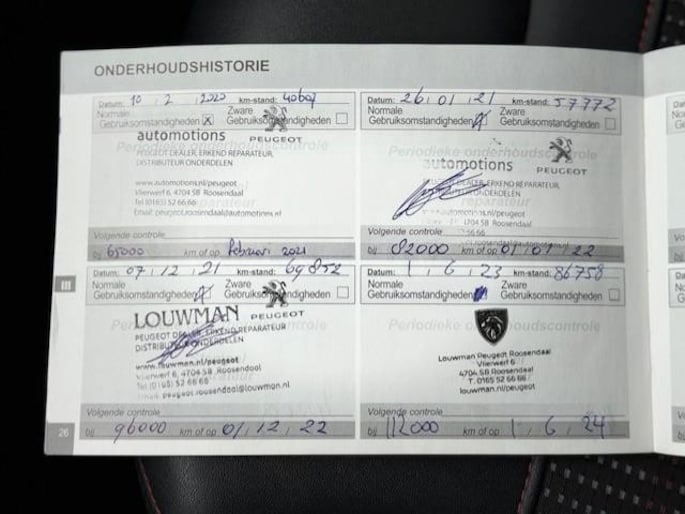 ONDERHOUDSHISTORIE
Datum: 10 2 2020 km-stand: 40607
Normale Gebruiksomstandigheden X Zware Gebruiksomstandigheden
Periodieke onderhoudscontrole
automotions PEUGEOT
PEUGEOT DEALER, ERKEND REPARATEUR,
DISTRIBUTEUR ONDERDELEN
www.automotions.nl/peugeot
Vlierwerf 6, 4704 SB Roosendaal
Tel (0165) 52 66 66
Email: peugeot.roosendaal@automotions.nl
Volgende controle
bij 65000 km of op februari 2021
Datum: 26 01 21 km-stand: 57772
Normale Gebruiksomstandigheden X Zware Gebruiksomstandigheden
Periodieke onderhoudscontrole
automotions PEUGEOT
DEALER, ERKEND REPARATEUR,
ONDERDELEN
automotions.nl/peugeot
Roosendaal
Volgende controle
bij 82000 km of op 01 01 22
III
Datum: 07 12 21 km-stand: 69852
Normale Gebruiksomstandigheden X Zware Gebruiksomstandigheden
LOUWMAN PEUGEOT
PEUGEOT DEALER, ERKEND REPARATEUR
DISTRIBUTEUR ONDERDELEN
www.louwman.nl/peugeot
Vlierwerf 6, 4704 SB Roosendaal
Tel (0165) 52 66 66
Email: peugeot.roosendaal@louwman.nl
Volgende controle
bij 96000 km of op 01 12 22
Datum: 1 6 23 km-stand: 86758
Normale Gebruiksomstandigheden Zware Gebruiksomstandigheden
Periodieke onderhoudscontrole
Louwman Peugeot Roosendaal
Vlierwerf 6
4704 SB Roosendaal
T. 0165 52 66 66
louwman.nl/peugeot
Volgende controle
bij 112000 km of op 1 6 24
26